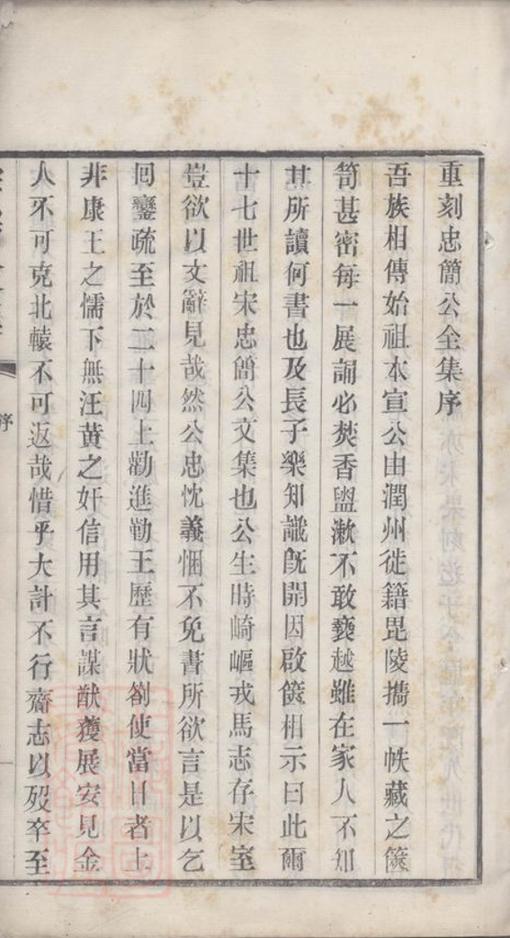 重刻忠簡公全集序
吾族相傳始祖本宣公由潤州徙籍毘陵攜一帙藏之篋
笥甚密每一展誦必焚香盥漱不敢褻越雖在家人不知
其所讀何書也及長子樂知識旣開因啟篋相示曰此爾
十七世祖宋忠簡公文集也公生時崎嶇戎馬志存宋室
豈欲以文辭見哉然公忠忱義悃不免書所欲言是以乞
囘鑾疏至於二十四上勸進勤王歷有狀劄使當日者上
非康王之懦下無汪黃之奸信用其言謀猷獲展安見金
人不可克北轅不可返哉惜乎大計不行齎志以歿卒至
序